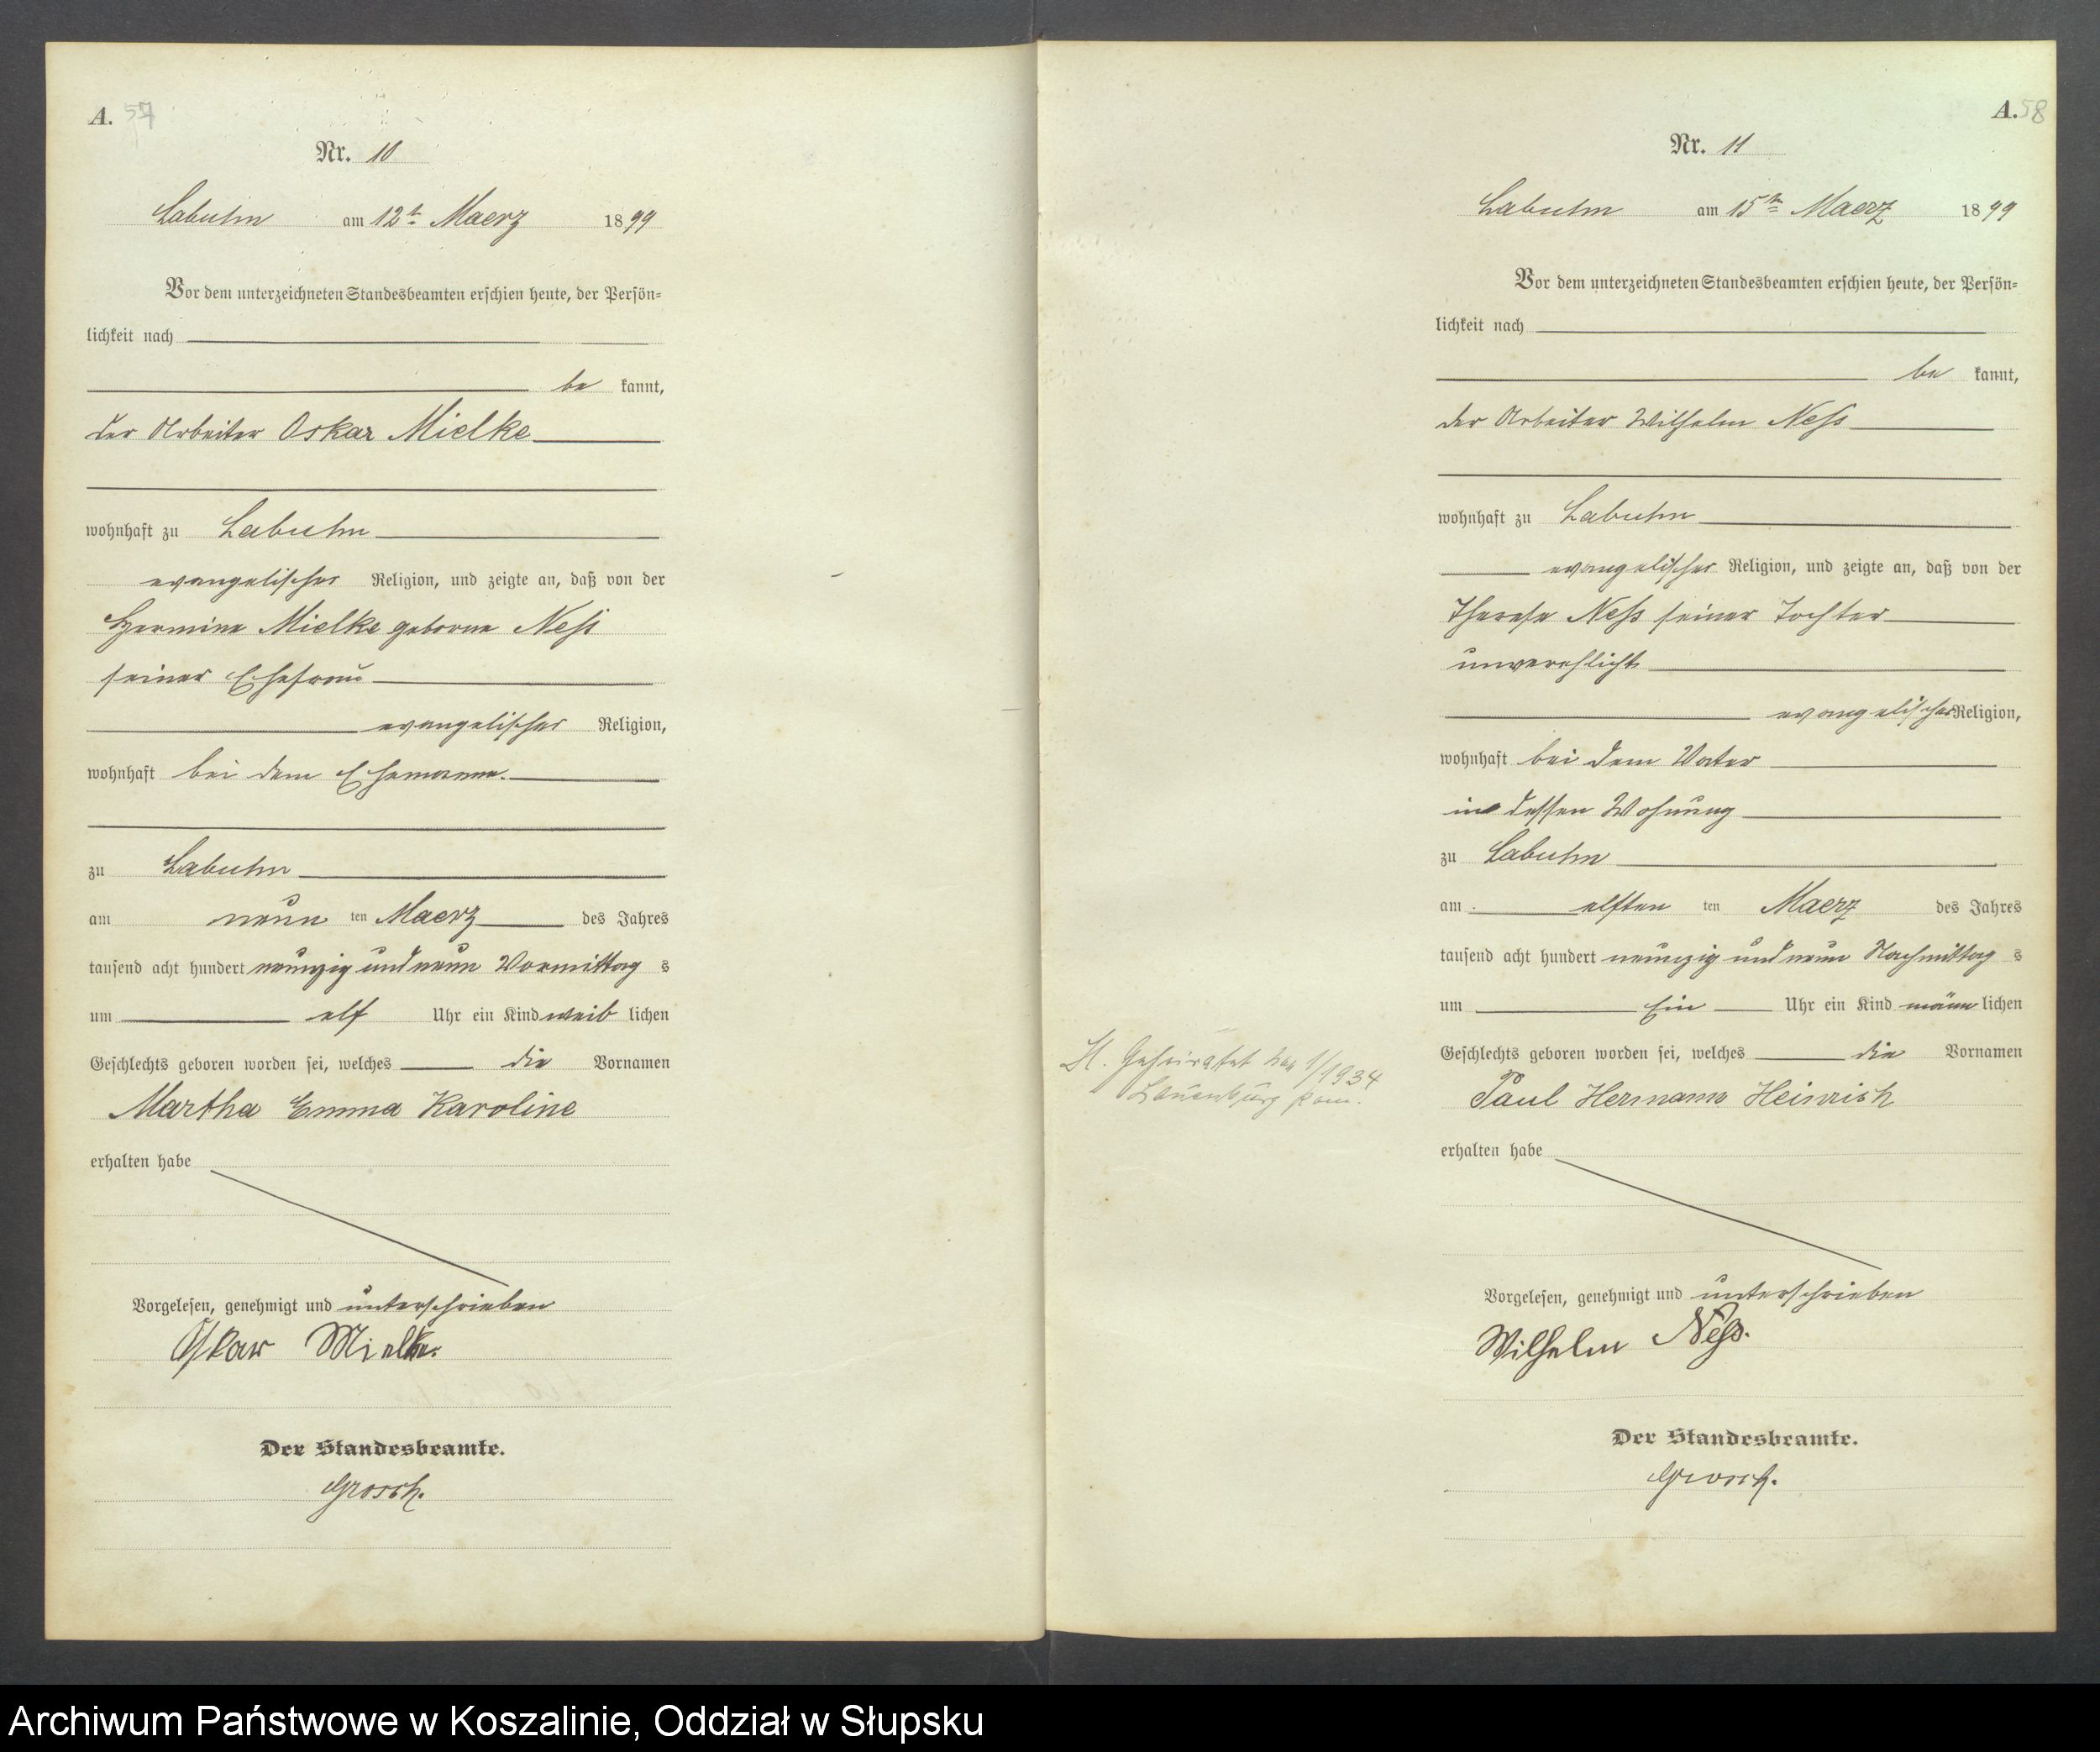 A. 57
Nr. 10
Labuhn am 12ten Maerz 1899
Vor dem unterzeichneten Standesbeamten erschien heute, der Persön-
lichkeit nach
be kannt,
der Arbeiter Oskar Mielke
wohnhaft zu Labuhn
evangelischer Religion, und zeigte an, daß von der
Hermine Mielke geborne Neß
seiner Ehefrau
evangelischer Religion,
wohnhaft bei dem Ehemanne.
zu Labuhn
am neun ten Maerz des Jahres
tausend acht hundert neunzig und neun Vormittag s
um elf Uhr ein Kind weib lichen
Geschlechts geboren worden sei, welches die Vornamen
Martha Emma Karoline
erhalten habe
Vorgelesen, genehmigt und unterschrieben
Oskar Mielke.
Der Standesbeamte.
Grosch.
A. 58
Nr. 11
Labuhn am 15ten Maerz 1899
Vor dem unterzeichneten Standesbeamten erschien heute, der Persön-
lichkeit nach
be kannt,
der Arbeiter Wilhelm Neß
wohnhaft zu Labuhn
evangelischer Religion, und zeigte an, daß von der
Therese Neß seiner Tochter
unverehlicht
evangelischer Religion,
wohnhaft bei dem Vater
in dessen Wohnung
zu Labuhn
am elften ten Maerz des Jahres
tausend acht hundert neunzig und neun Nachmittag s
um Ein Uhr ein Kind männ lichen
Geschlechts geboren worden sei, welches die Vornamen
Paul Hermann Heinrich
erhalten habe
Vorgelesen, genehmigt und unterschrieben
Wilhelm Neß.
Der Standesbeamte.
Grosch.
H. Geheiratet 1/1934
Lauenburg Pom.
Archiwum Państwowe w Koszalinie, Oddział w Słupsku